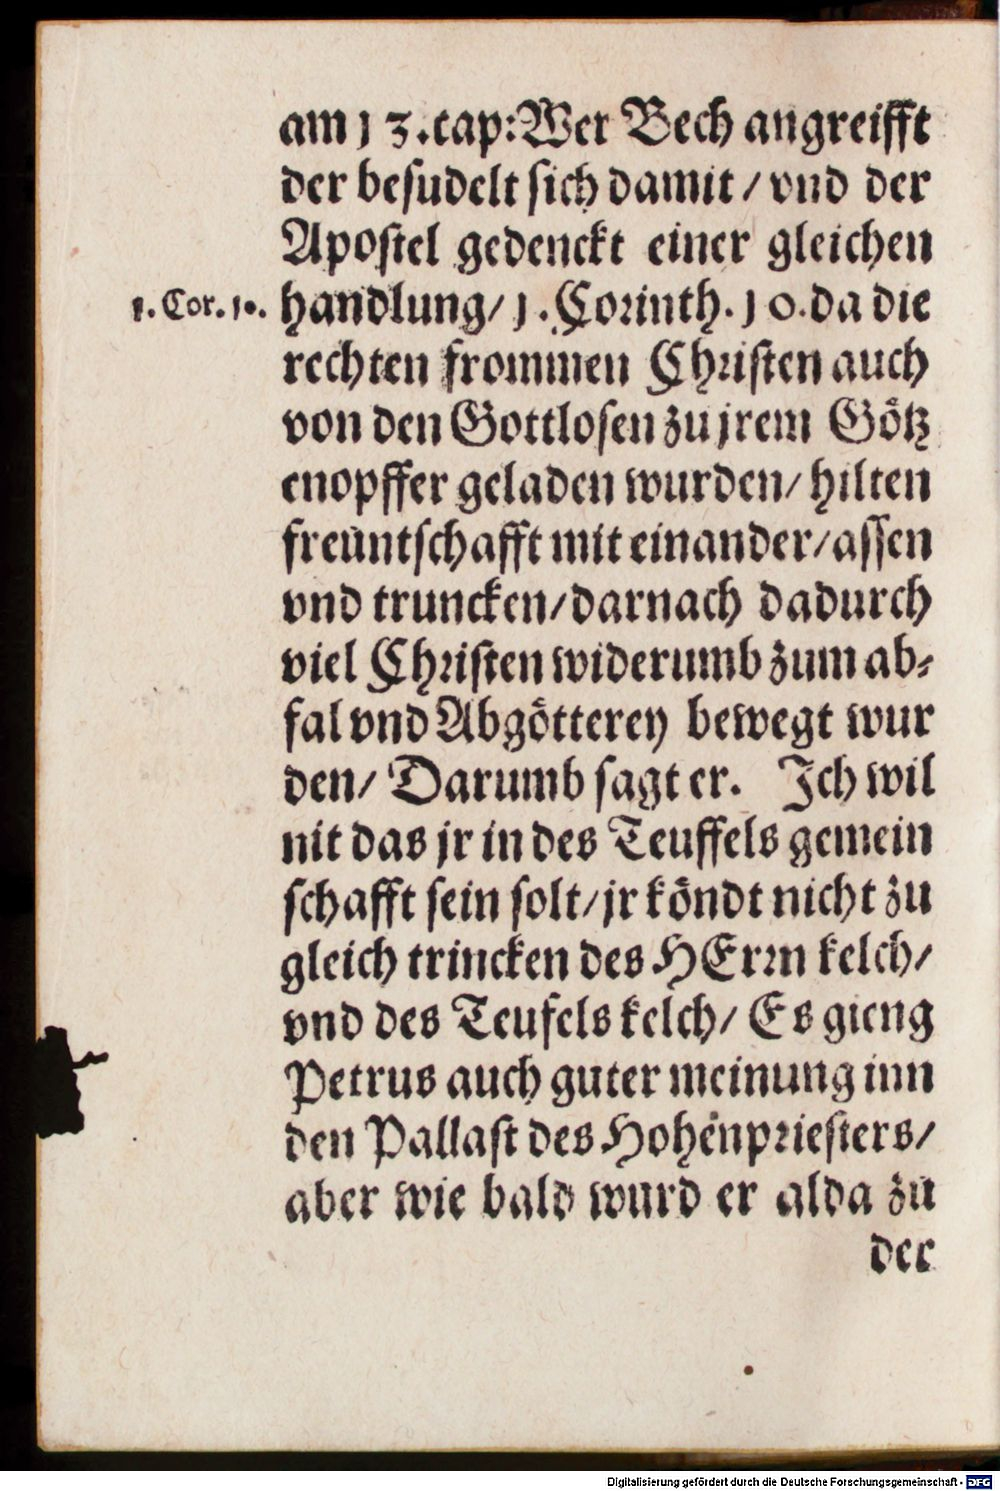 am 13. cap: Wer Bech angreifft
der besudelt sich damit / vnd der
Apostel gedenckt einer gleichen
1. Cor. 10.
handlung / 1. Corinth. 10. da die
rechten frommen Christen auch
von den Gottlosen zu jrem Götz
enopffer geladen wurden / hilten
freüntschafft mit einander / assen
vnd truncken / darnach dadurch
viel Christen widerumb zum ab-
fal vnd Abgötterey bewegt wur
den / Darumb sagt er. Ich wil
nit das jr in des Teuffels gemein
schafft sein solt / jr köndt nicht zu
gleich trincken des HErrn kelch /
vnd des Teufels kelch / Es gieng
Petrus auch guter meinung inn
den Pallast des Hohenpriesters /
aber wie bald wurd er alda zu
der
Digitalisierung gefördert durch die Deutsche Forschungsgemeinschaft - DFG